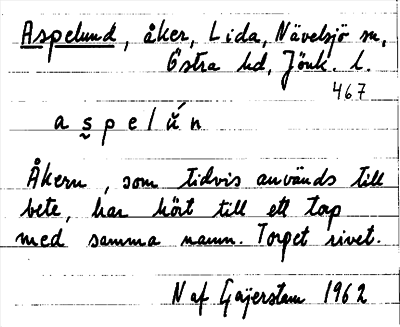 Aspelund, åker, Lida, Nävelsjö sn,
Östra hd, Jönk. l.
467
a s̰ p e l ŭ́ n
Åkern, som tidvis används till
bete, har hört till ett torp
med samma namn. Torpet rivet.
N af Geijerstam 1962